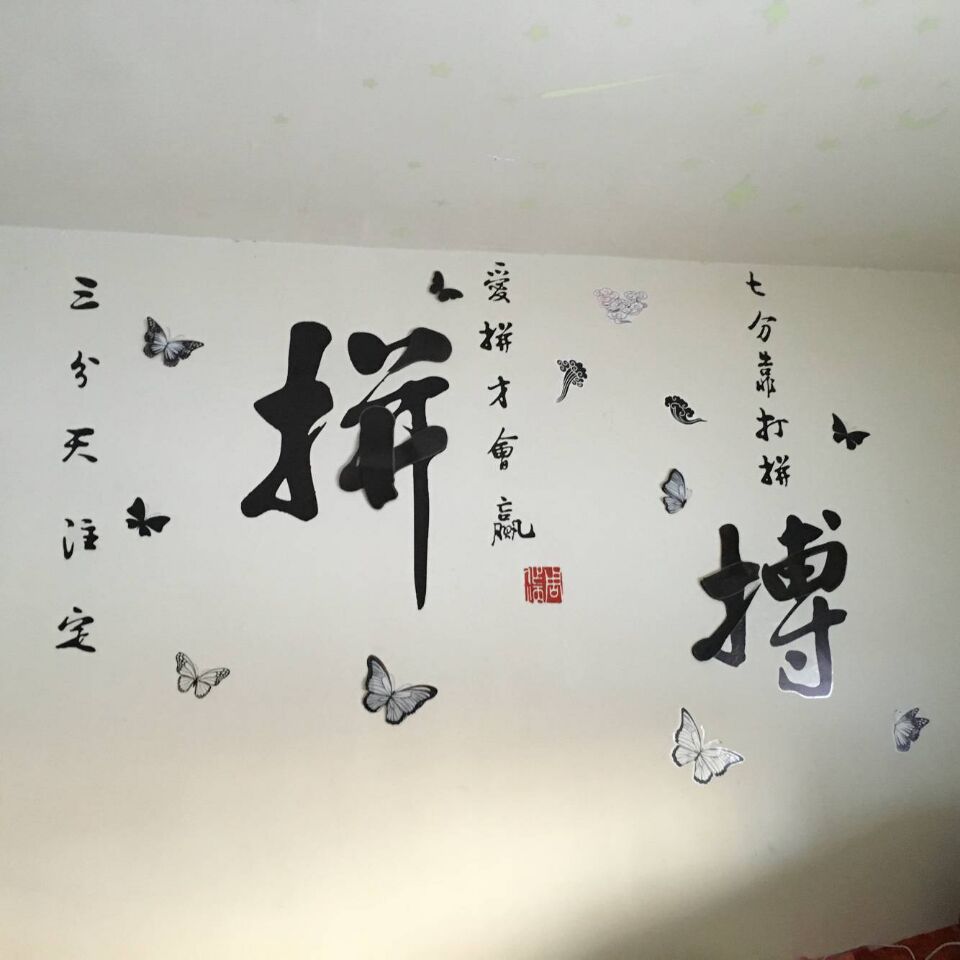 三分天注定
拼
愛拼才會贏
七分靠打拼
搏